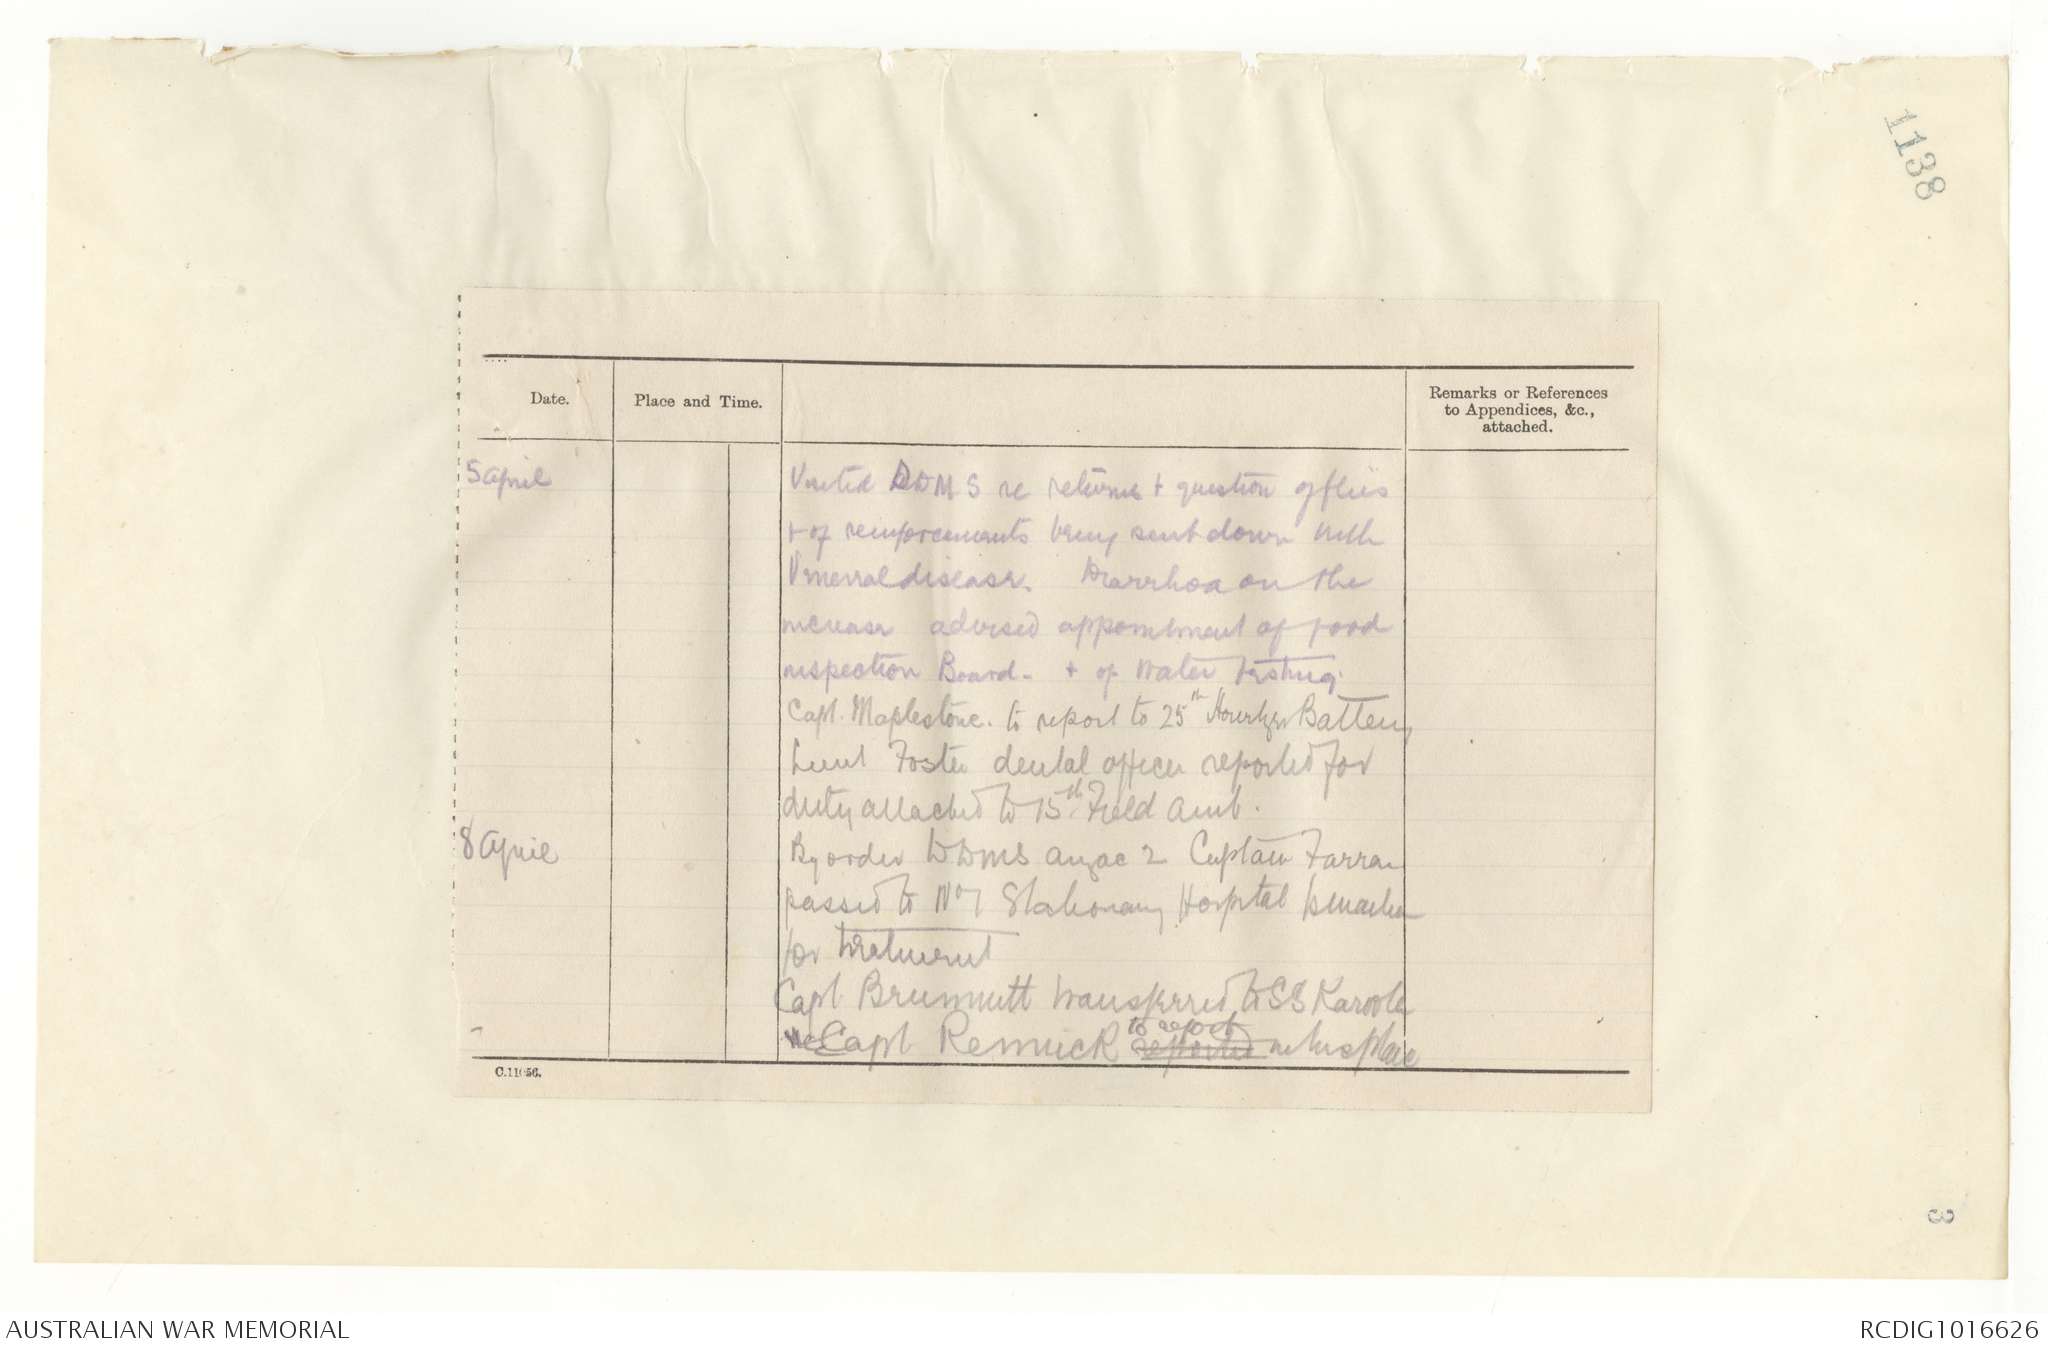 1138
Date.
Place and Time.
Remarks or References
to Appendices, &c.,
attached.
5 April
Visited DDMS re returns + question of flies
+ of reinforcements being sent down with
Venereal disease. Diarrhoea on the
increase advised appointment of food
inspection Board - + of Water testing.
Capt. Maplestone. to report to 25th Howitzer Battery
Lieut Foster dental officer reported for
duty attached to 15th Field Amb.
8 April
By order DDMS Anzac 2 Captain Farran
passed to No 1 Stationary Hospital Ismailia
for treatment
Capt Brummitt transferred to SS Karoola
Capt Rennick to report reported in his place
C.11056.
3
AUSTRALIAN WAR MEMORIAL
RCDIG1016626